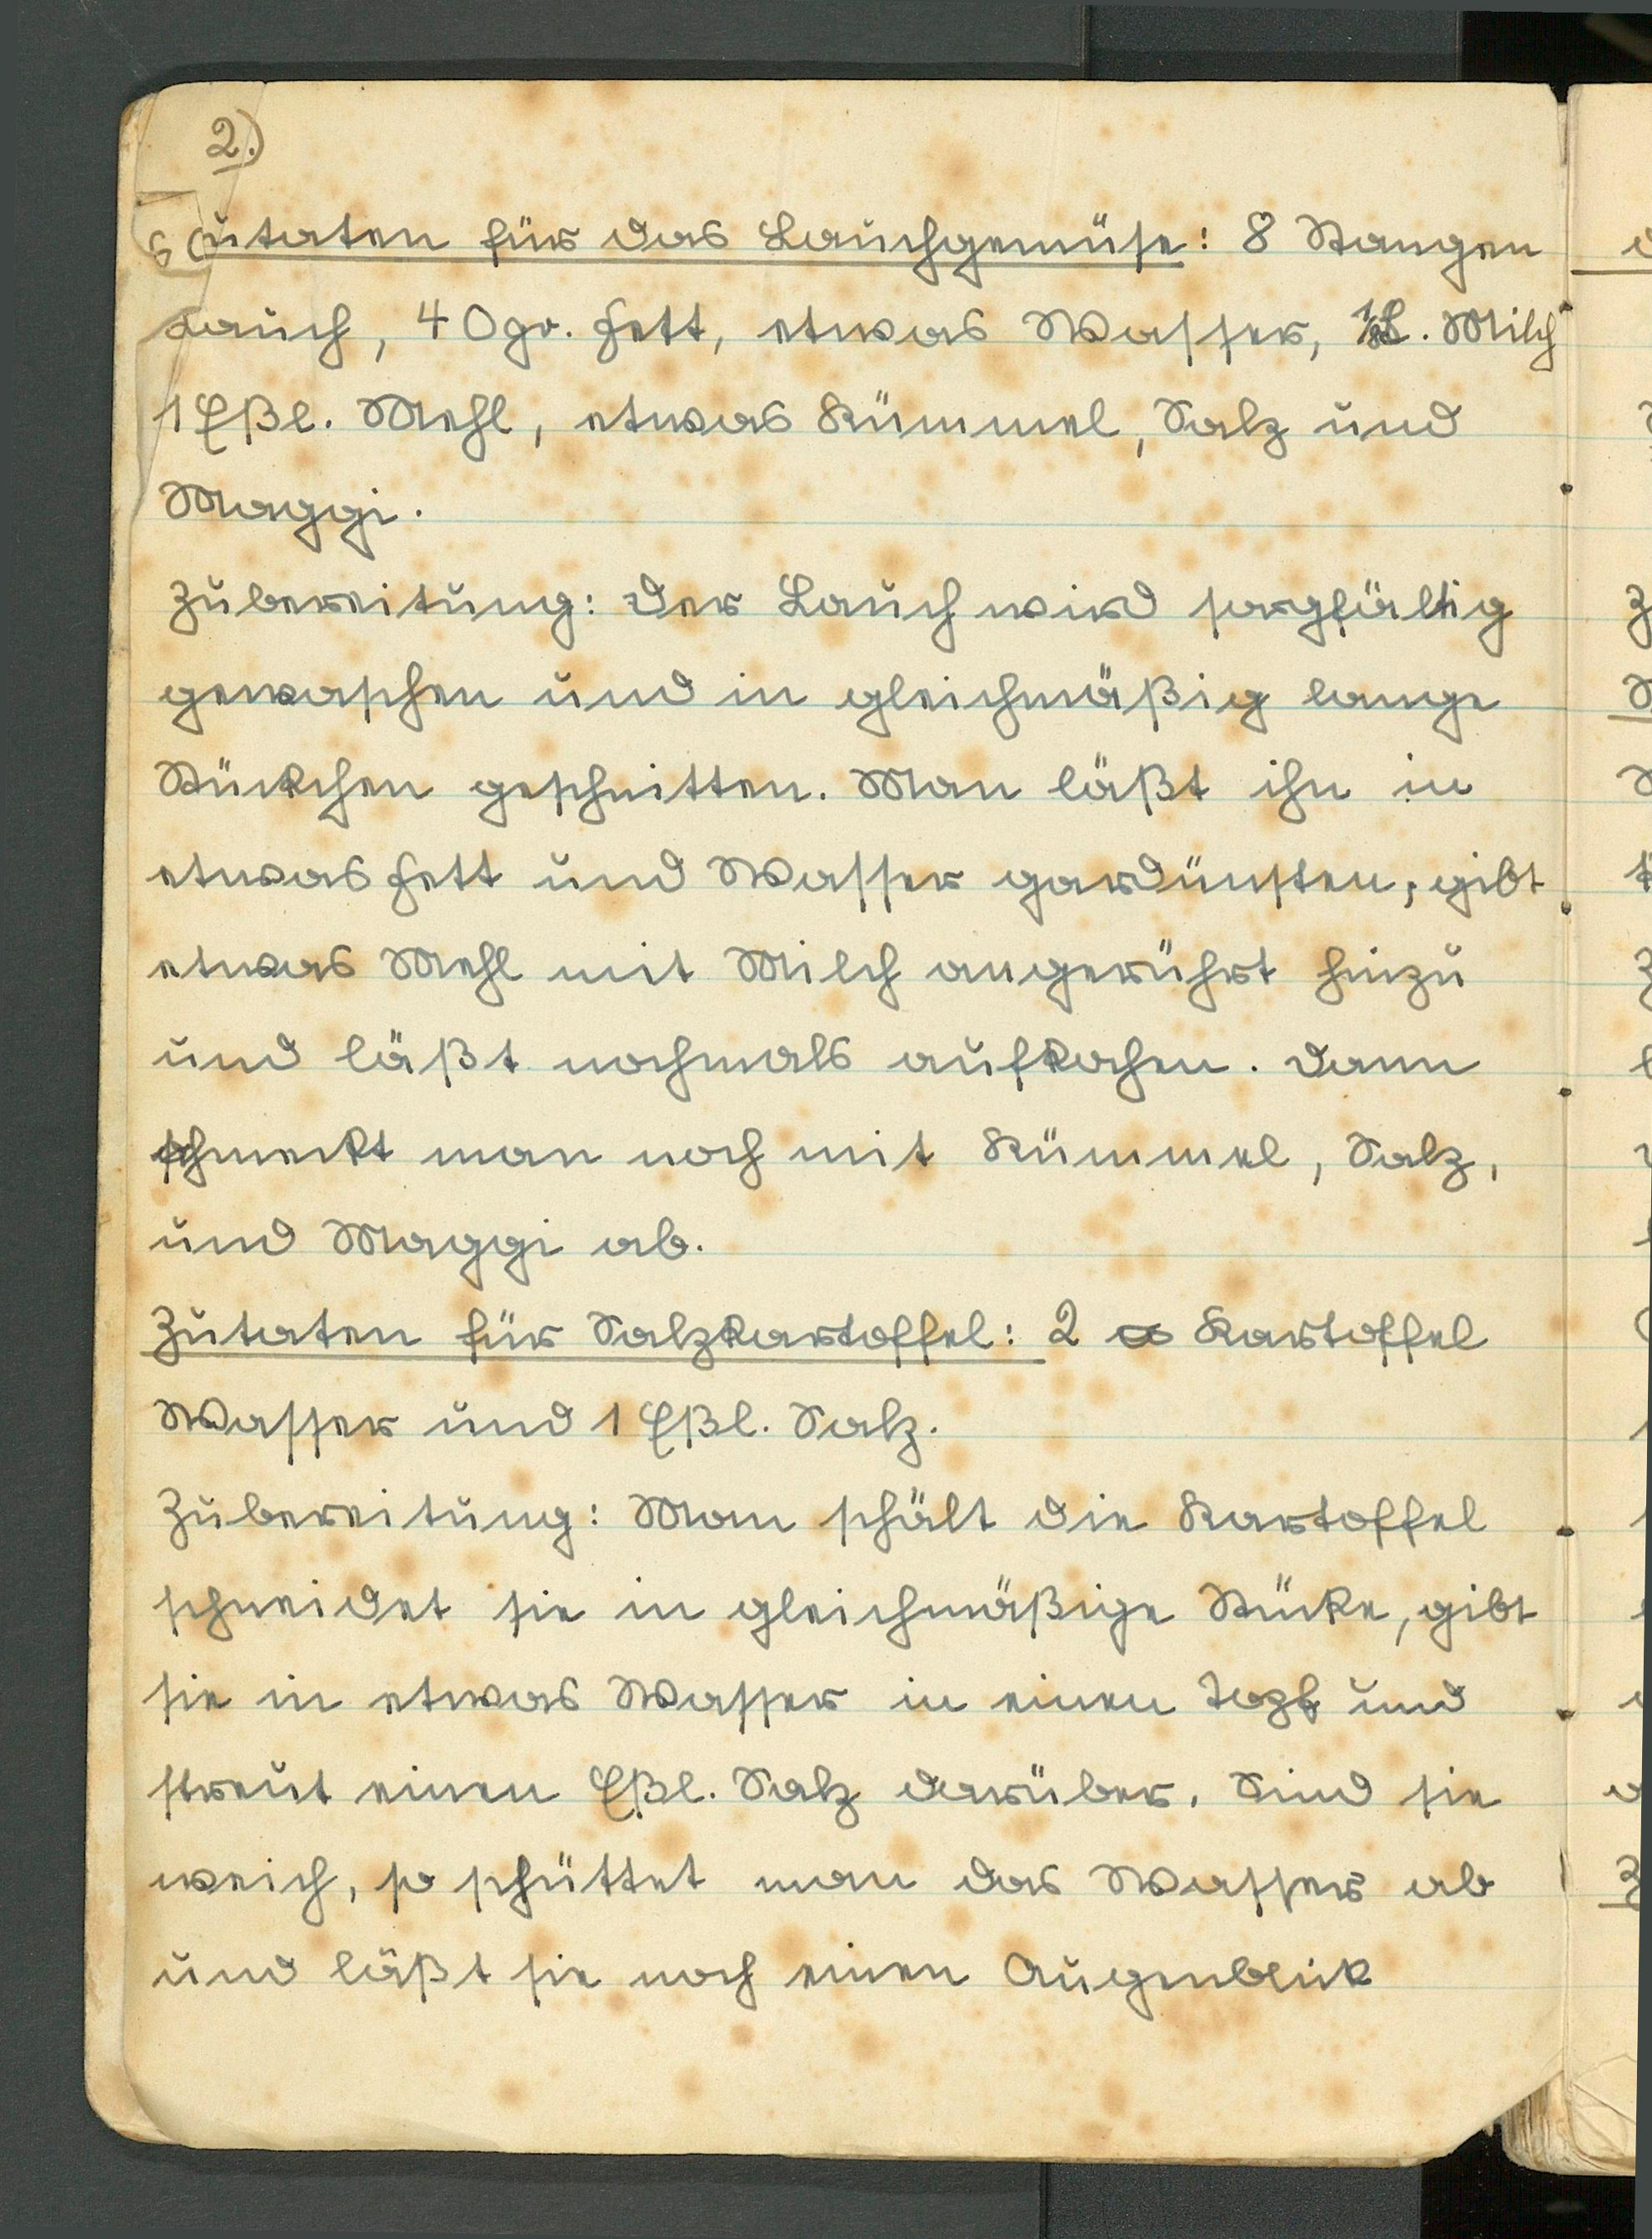 2.)
Zutaten für das Lauchgemüse: 8 Stangen
Lauch, 40gr. Fett, etwas Wasser, L. Milch
1 Eßl. Mehl, etwas Kümmel, Salz und
Maggi.
Zubereitung: Der Lauch wird sorgfältig
gewaschen und in gleichmäßig lange
Stückchen geschnitten. Man läßt ihn in
etwas Fett und Wasser gardünsten, gibt
etwas Mehl mit Milch angerührt hinzu
und läßt nochmals aufkochen. Dann
schmeckt man noch mit Kümmel, Salz,
und Maggi ab.
Zutaten für Salzkartoffel: 2 ℔ Kartoffel
Wasser und 1 Eßl. Salz.
Zubereitung: Man schält die Kartoffel
schneidet sie in gleichmäßige Stücke, gibt
sie in etwas Wasser in einen Topf und
streut einen Eßl. Salz darüber. Sind sie
weich, so schüttet man das Wasser ab
und läßt sie noch einen Augenblick